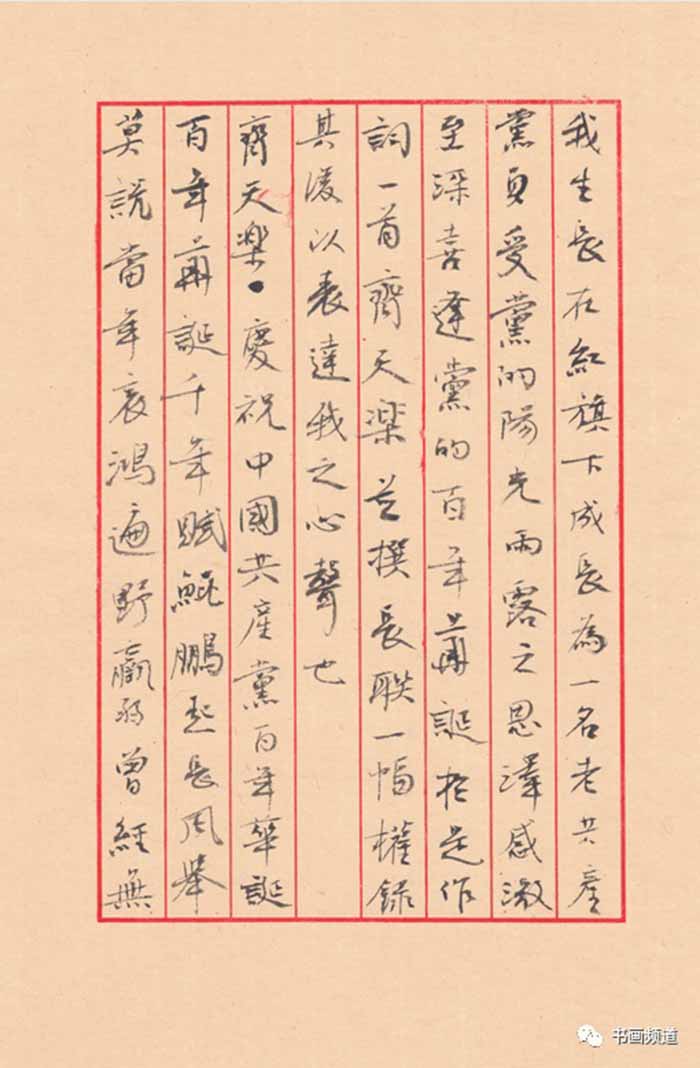 我生長在紅旗下成長為一名老共產
黨員受黨的陽光雨露之恩澤感激
至深喜逢黨的百年華誕於是作
詞一首齊天樂并撰長联一幅權錄
其後以表達我之心聲也
齊天樂·慶祝中國共產黨百年華誕
百年華誕千年賦鯤鵬起長風舉
莫說當年哀鴻遍野羸弱曾經無
书画频道